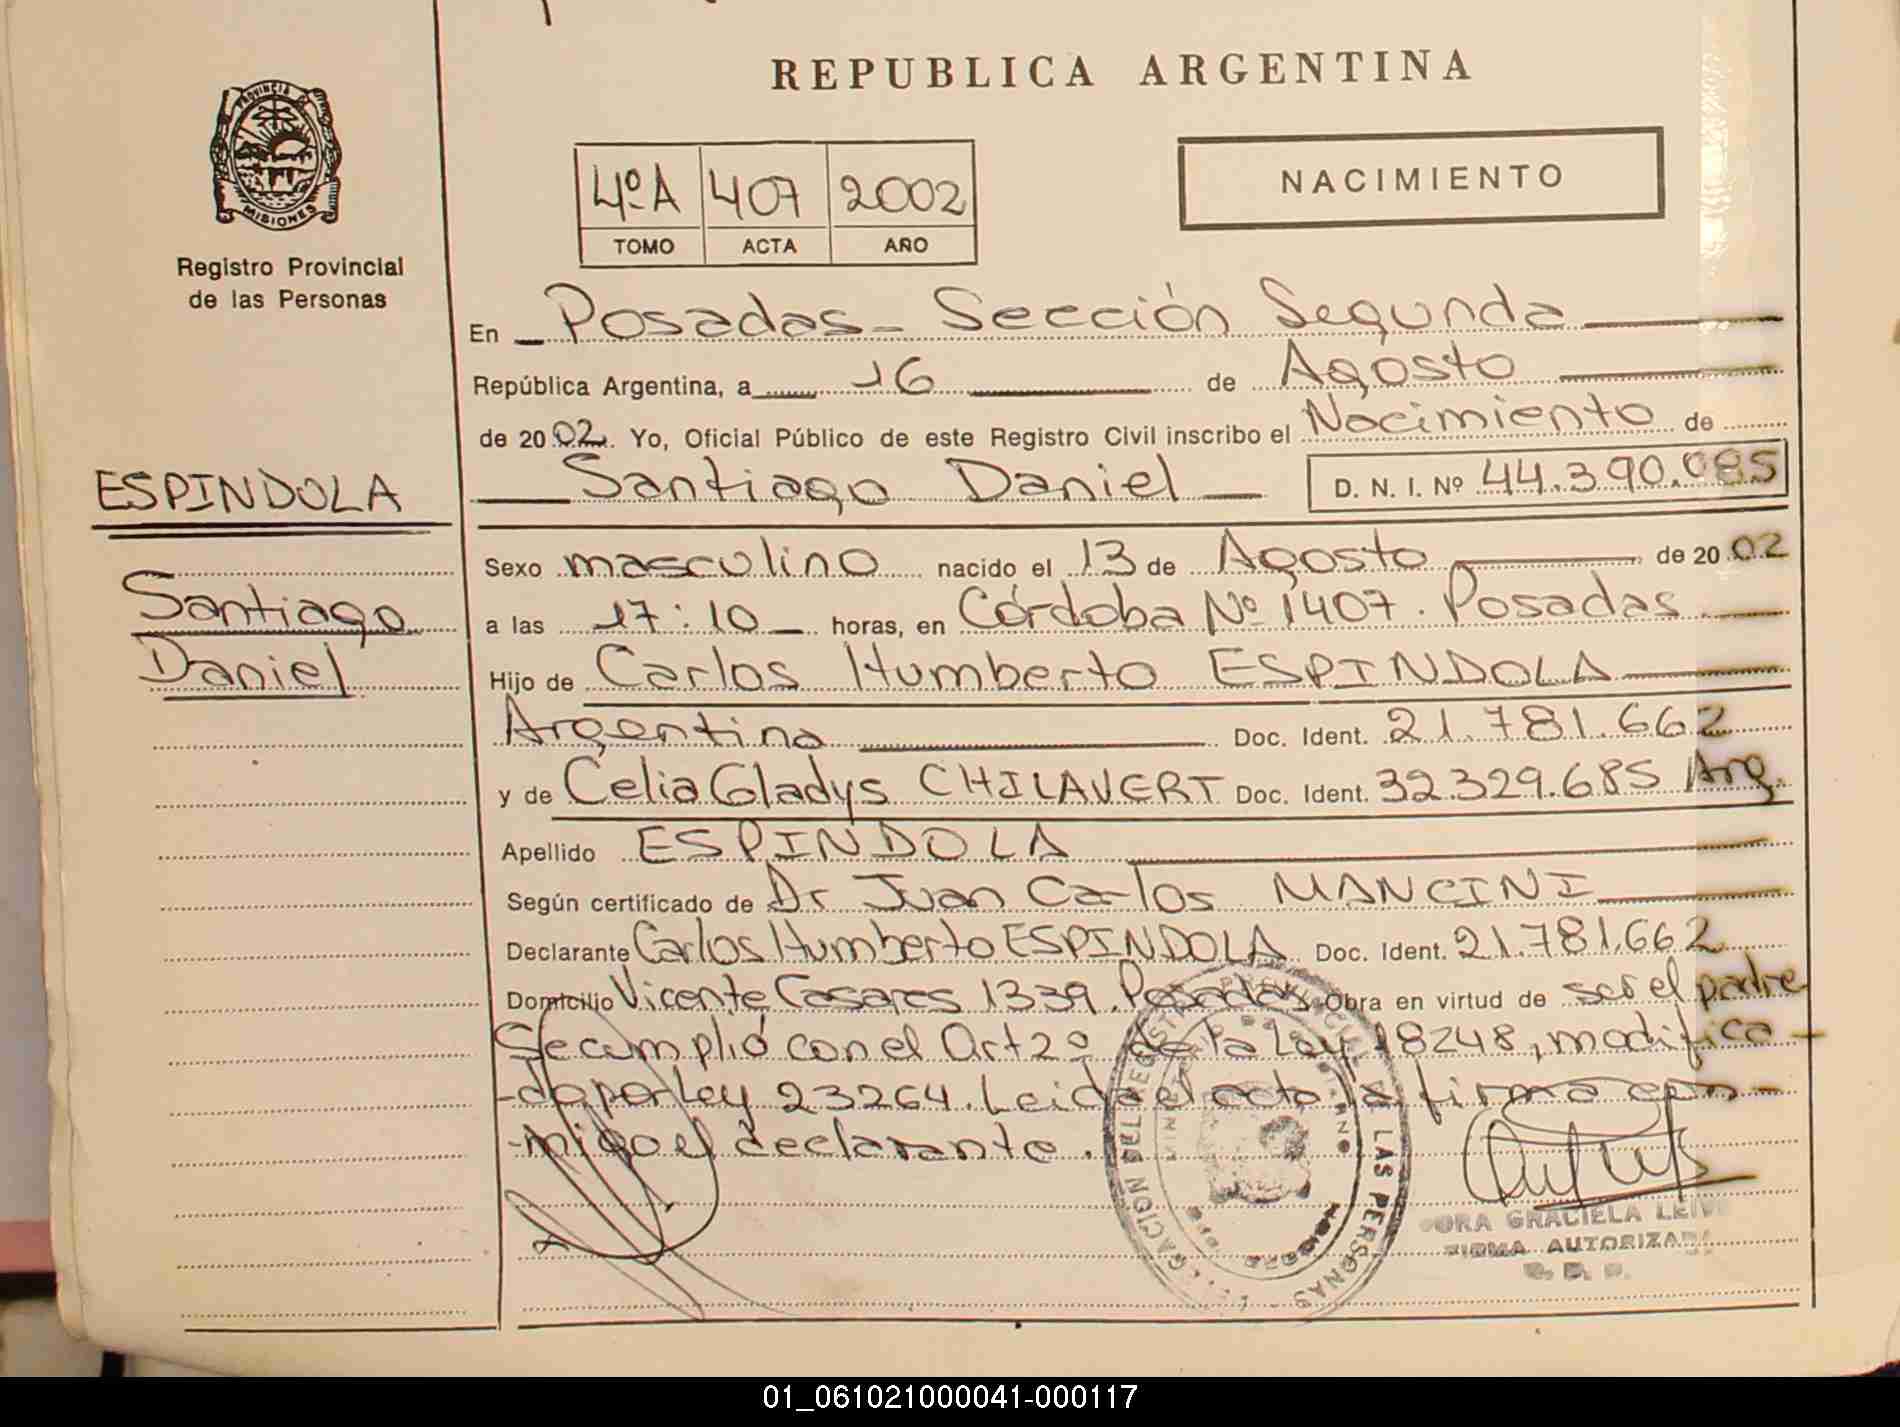 REPUBLICA ARGENTINA
PROVINCIA DE
MISIONES
Registro Provincial
de las Personas
4º A 407 2002
TOMO ACTA AÑO
NACIMIENTO
En Posadas - Sección Segunda
República Argentina, a 16 de Agosto
de 2002. Yo, Oficial Público de este Registro Civil inscribo el Nacimiento de
Santiago Daniel D. N. I. Nº 44.390.085
ESPINDOLA
Santiago
Daniel
Sexo masculino nacido el 13 de Agosto de 2002
a las 17:10 horas, en Córdoba Nº 1407. Posadas
Hijo de Carlos Humberto ESPINDOLA
Argentina Doc. Ident. 21.781.662
y de Celia Gladys CHILAVERT Doc. Ident. 32.329.685 Arg.
Apellido ESPINDOLA
Según certificado de Dr Juan Carlos MANCINI
Declarante Carlos Humberto ESPINDOLA Doc. Ident. 21.781.662
Domicilio Vicente Casares 1339. Posadas Obra en virtud de ser el padre
Se cumplió con el Art 2º de la Ley 18248, modifica-
-do por Ley 23264. Leida el acta la firma con-
-migo el declarante.
LAS PERSONAS
GRACIELA
FIRMA AUTORIZADA
01_061021000041-000117